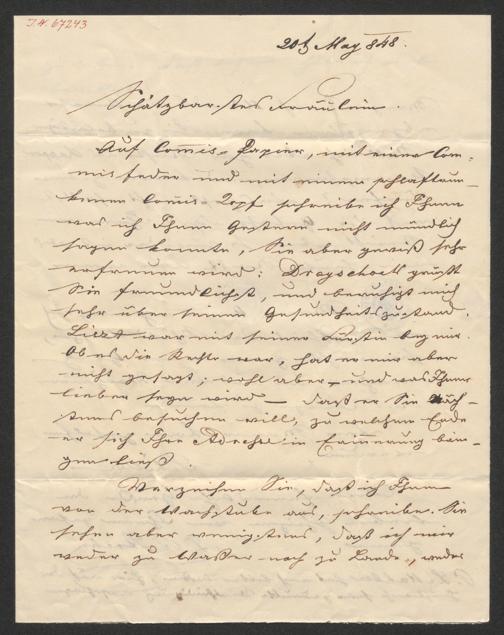 I.N. 67243
20t May 848.
Schätzbarstes Fräulein.
Auf Commis-Papier, mit einer Com-
misfeder und mit einem schlaftrun-
kenen Commis-Kopf schreibe ich Ihnen
was ich Ihnen Gestern nicht mündlich
sagen konnte, Sie aber gewiß sehr
erfreuen wird: Dreyschock grüßt
Sie freundlichst, und beruhigt mich
sehr über seinen Gesundheitszustand.
Liszt war mit seiner Fürstin bey mir.
Ob es die Rechte war, hat er mir aber
nicht gesagt; wohl aber – und was Ihnen
lieber seyn wird – daß er Sie näch-
stens besuchen will, zu welchem Ende
er sich Ihre Adresse in Erinnerung brin-
gen ließ.
Verzeihen Sie, daß ich Ihnen
von der Wachstube aus, schreibe. Sie
sehen aber wenigstens, daß ich mir
weder zu Wasser noch zu Lande, weder